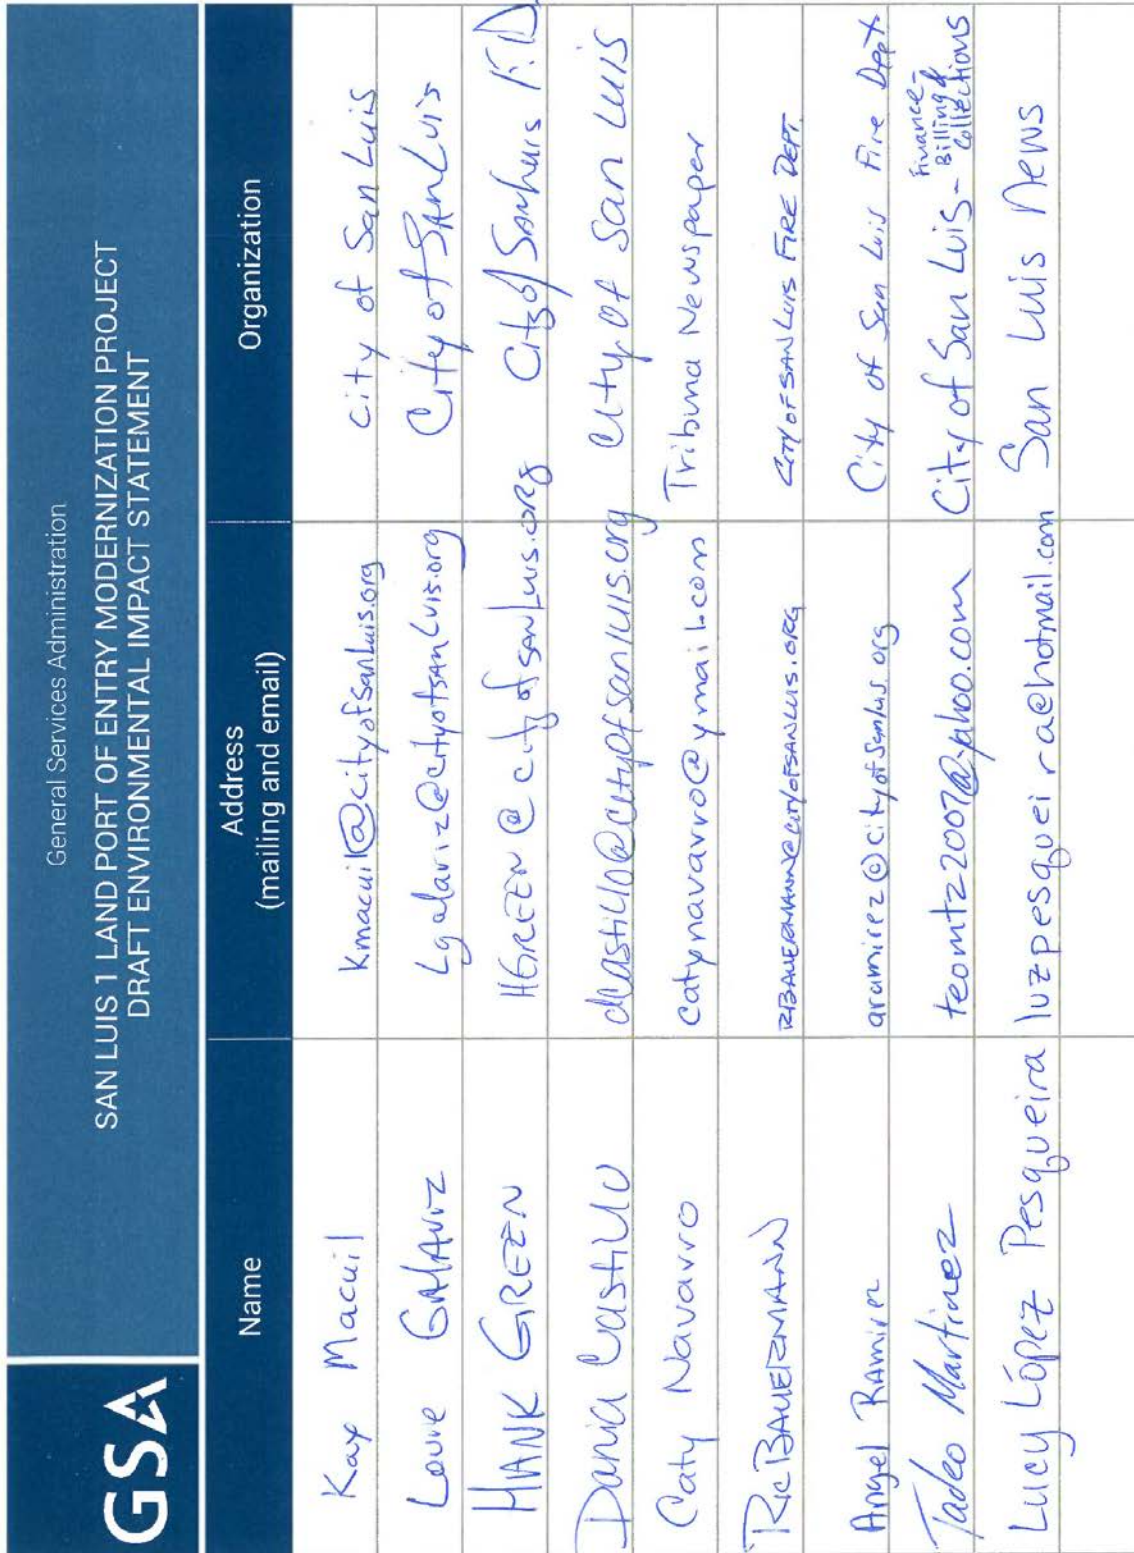 GSA
General Services Administration
SAN LUIS 1 LAND PORT OF ENTRY MODERNIZATION PROJECT
DRAFT ENVIRONMENTAL IMPACT STATEMENT
Name Address Organization
(mailing and email)
Kay Macuil Kmacuil@cityofsanluis.org City of San Luis
Louie GALAVIZ Lgalaviz@cityofsanLuis.org City of SAN Luis
HANK GREEN HGREEN@cityofsanLuis.org City of SanLuis F.D.
Dania Castillo dcastillo@cityofsanluis.org City of San Luis
Caty Navarro Catynavarro@ymail.com Tribuna Newspaper
RIC BAUERMANN RBAUERMANN@CITYOFSANLUIS.ORG CITY OF SAN LUIS FIRE DEPT.
Angel Ramirez aramirez@cityofsanluis.org City of San Luis Fire Dept.
Tadeo Martinez teomtz2007@yahoo.com City of San Luis - Finance -
Billing &
Collections
Lucy López Pesqueira luzpesqueira@hotmail.com San Luis News